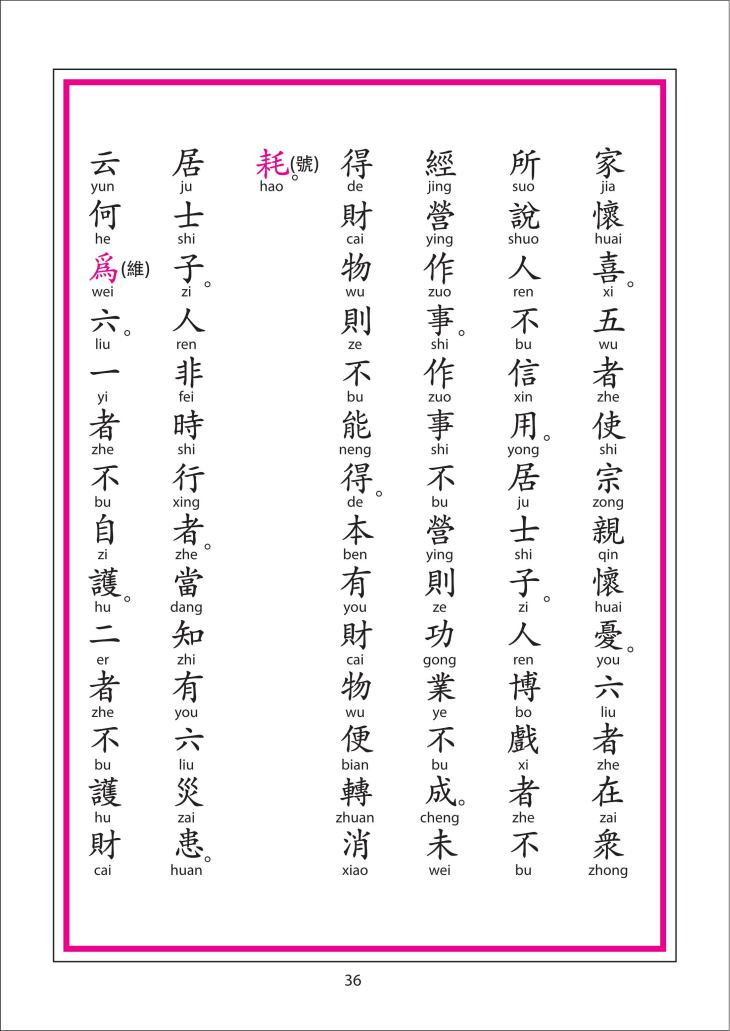 家懷喜。五者使宗親懷憂。六者在衆
jia huai xi wu zhe shi zong qin huai you liu zhe zai zhong
所說人不信用。居士子。人博戲者不
suo shuo ren bu xin yong ju shi zi ren bo xi zhe bu
經營作事。作事不營則功業不成。未
jing ying zuo shi zuo shi bu ying ze gong ye bu cheng wei
得財物則不能得。本有財物便轉消
de cai wu ze bu neng de ben you cai wu bian zhuan xiao
耗(號)。
hao
居士子。人非時行者。當知有六災患。
ju shi zi ren fei shi xing zhe dang zhi you liu zai huan
云何爲(維)六。一者不自護。二者不護財
yun he wei liu yi zhe bu zi hu er zhe bu hu cai
36